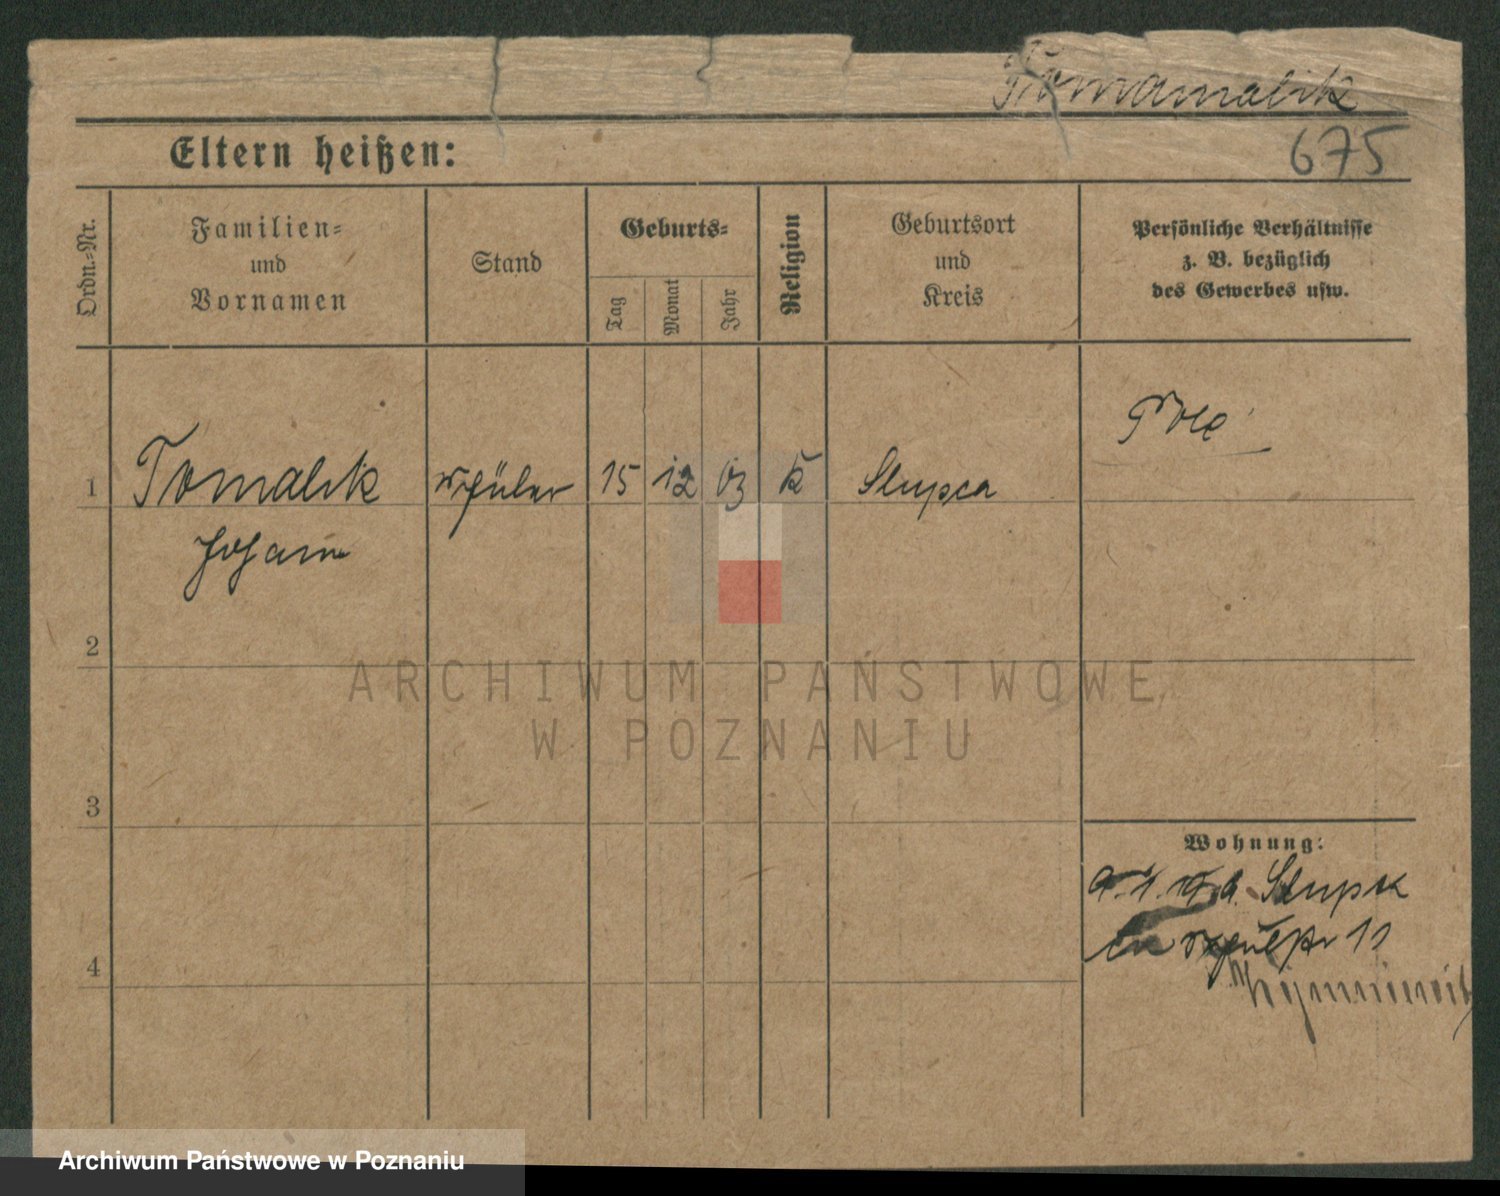 Tomamalik
675
Eltern heißen:
Ordn.-Nr.
Familien-
und
Vornamen
Stand
Geburts-
Tag
Monat
Jahr
Religion
Geburtsort
und
Kreis
Persönliche Verhältnisse
z. B. bezüglich
des Gewerbes usw.
Pole
1 Tomalik Schüler 15 12 03 k Slupca
Johann
2
ARCHIWUM PAŃSTWOWE
W POZNANIU
3
Wohnung:
Slupca
11
4
Archiwum Państwowe w Poznaniu